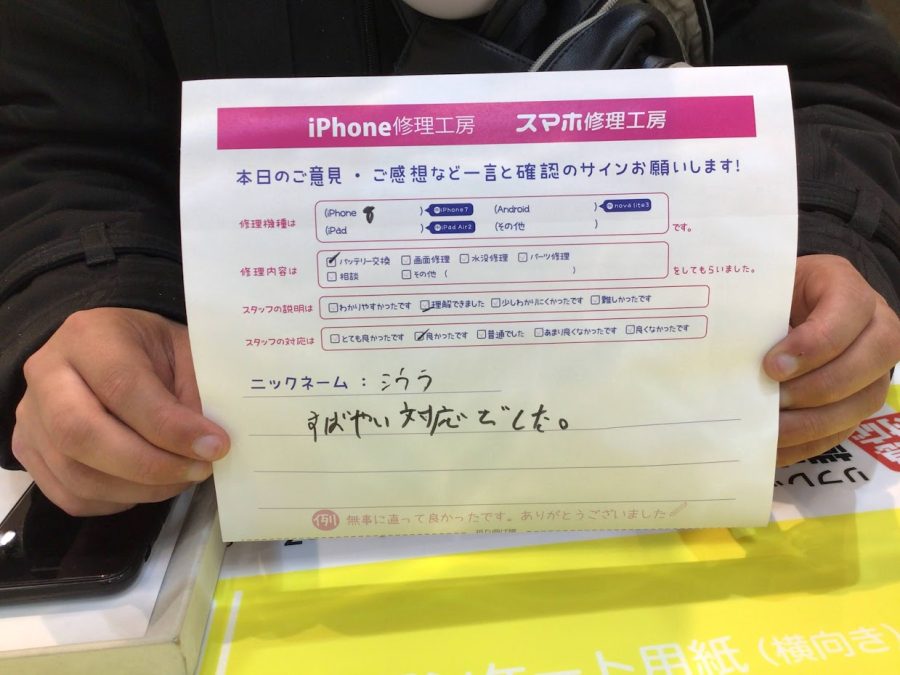 iPhone修理工房 スマホ修理工房
本日のご意見・ご感想など一言と確認のサインお願いします!
修理機種は (iPhone 8 ) 例iPhone7 (Android ) 例nova lite3
(iPad ) 例iPad Air2 (その他 ) です。
修理内容は ☑バッテリー交換 □画面修理 □水没修理 □パーツ修理
□相談 □その他 ( ) をしてもらいました。
スタッフの説明は □わかりやすかったです ☑理解できました □少しわかりにくかったです □難しかったです
スタッフの対応は □とても良かったです ☑良かったです □普通でした □あまり良くなかったです □良くなかったです
ニックネーム : ジウラ
すばやい対応でした。
例 無事に直って良かったです。ありがとうございました
リフレッ
ンケート用紙(横向き)